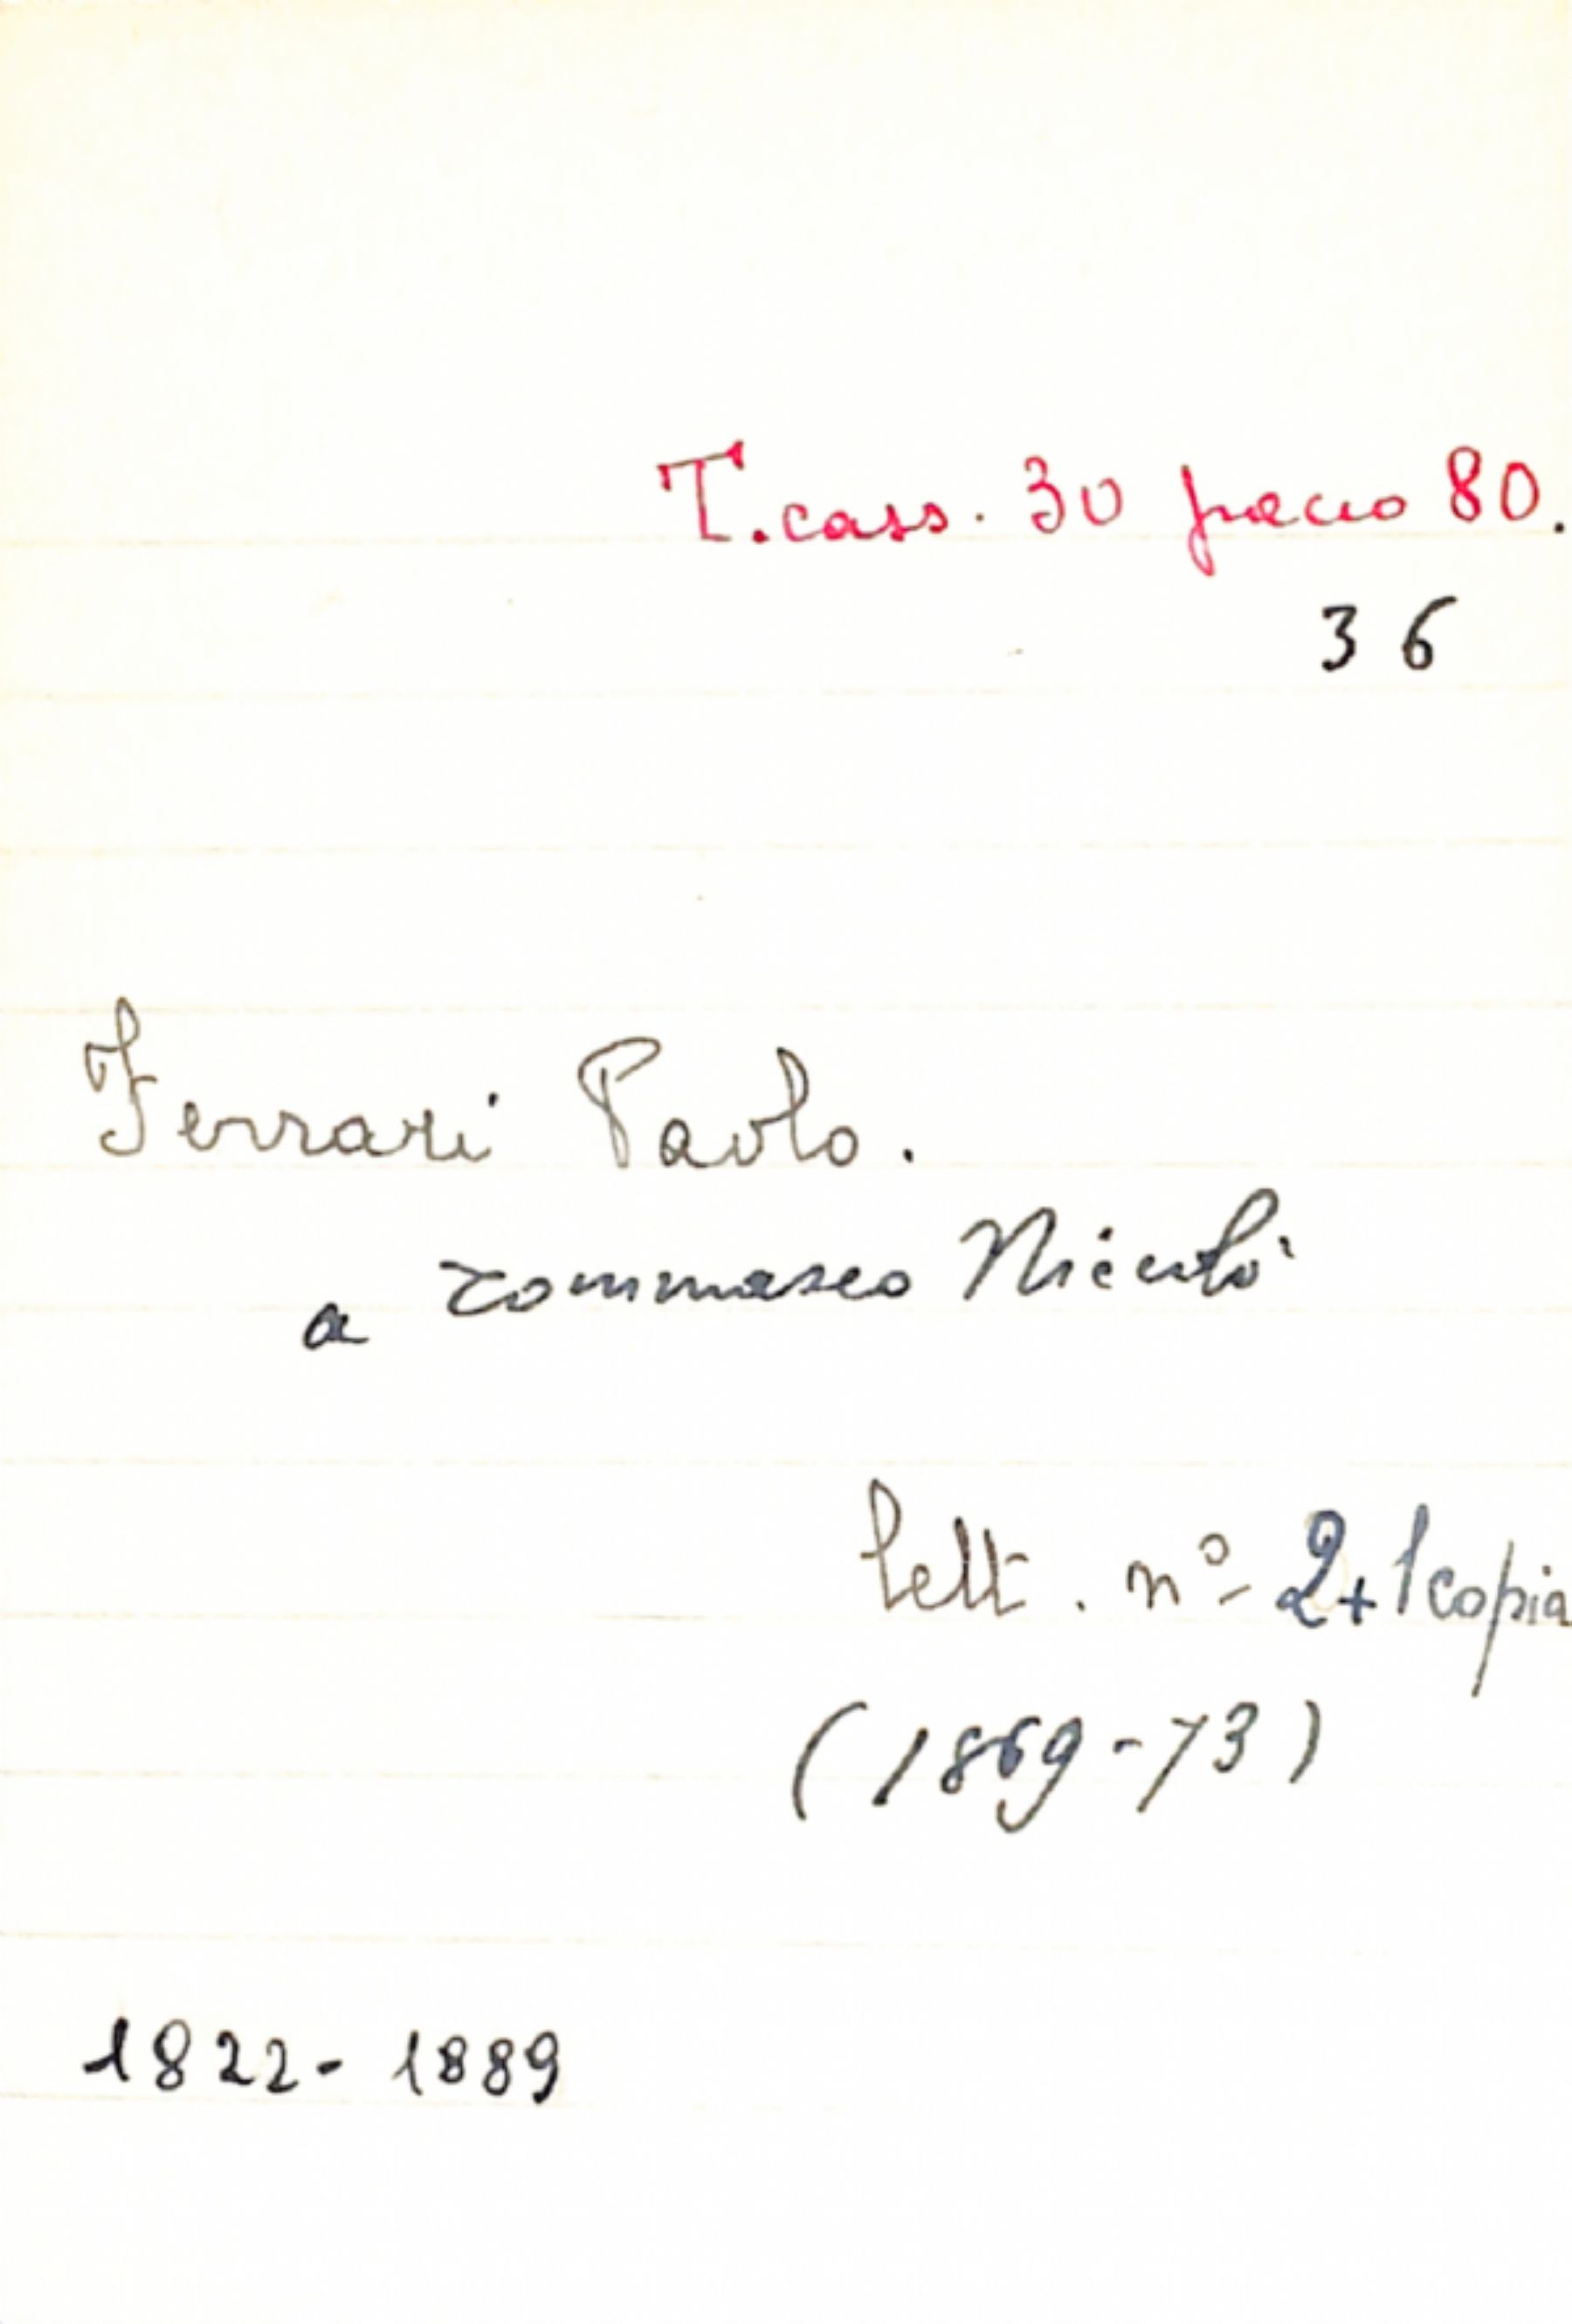 T. cass. 30 pacco 80.
36
Ferrari Paolo.
a Tommaseo Niccolò
lett. nº 2+1 copia
(1869-73)
1822-1889